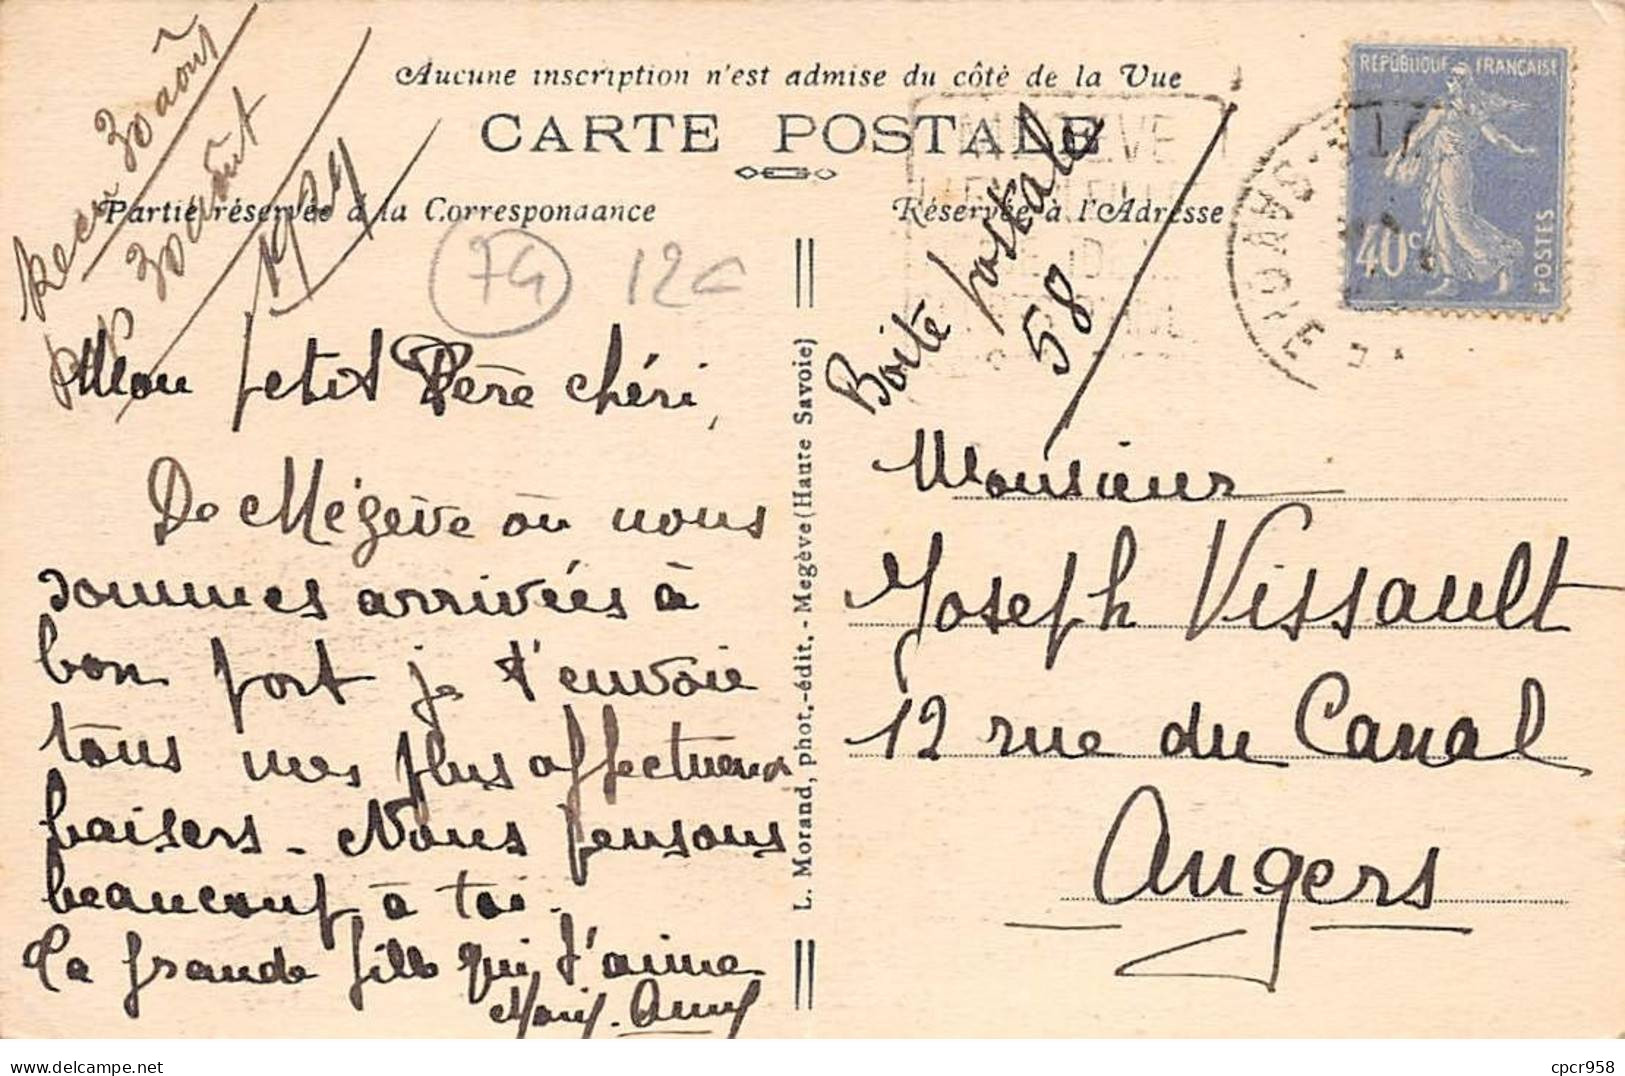 Aucune inscription n'est admise du côté de la Vue
CARTE POSTALE
Partie réservée à la Correspondance
Réservée à l'Adresse
Recu 30 août
30 août
74
12€
Mon petit Père chéri,
De Mégève où nous
sommes arrivées à
bon port je t'envoie
tous mes plus affectueux
baisers - Nous pensons
beaucoup à toi.
Ta grande fille qui t'aime
L. Morand, phot.-édit. - Megève (Haute Savoie)
Boîte postale
58
Monsieur
Joseph Vissault
12 rue du Canal
Angers
RÉPUBLIQUE FRANÇAISE
40c
POSTES
MEGEVE
HTE SAVOIE
cpcr958